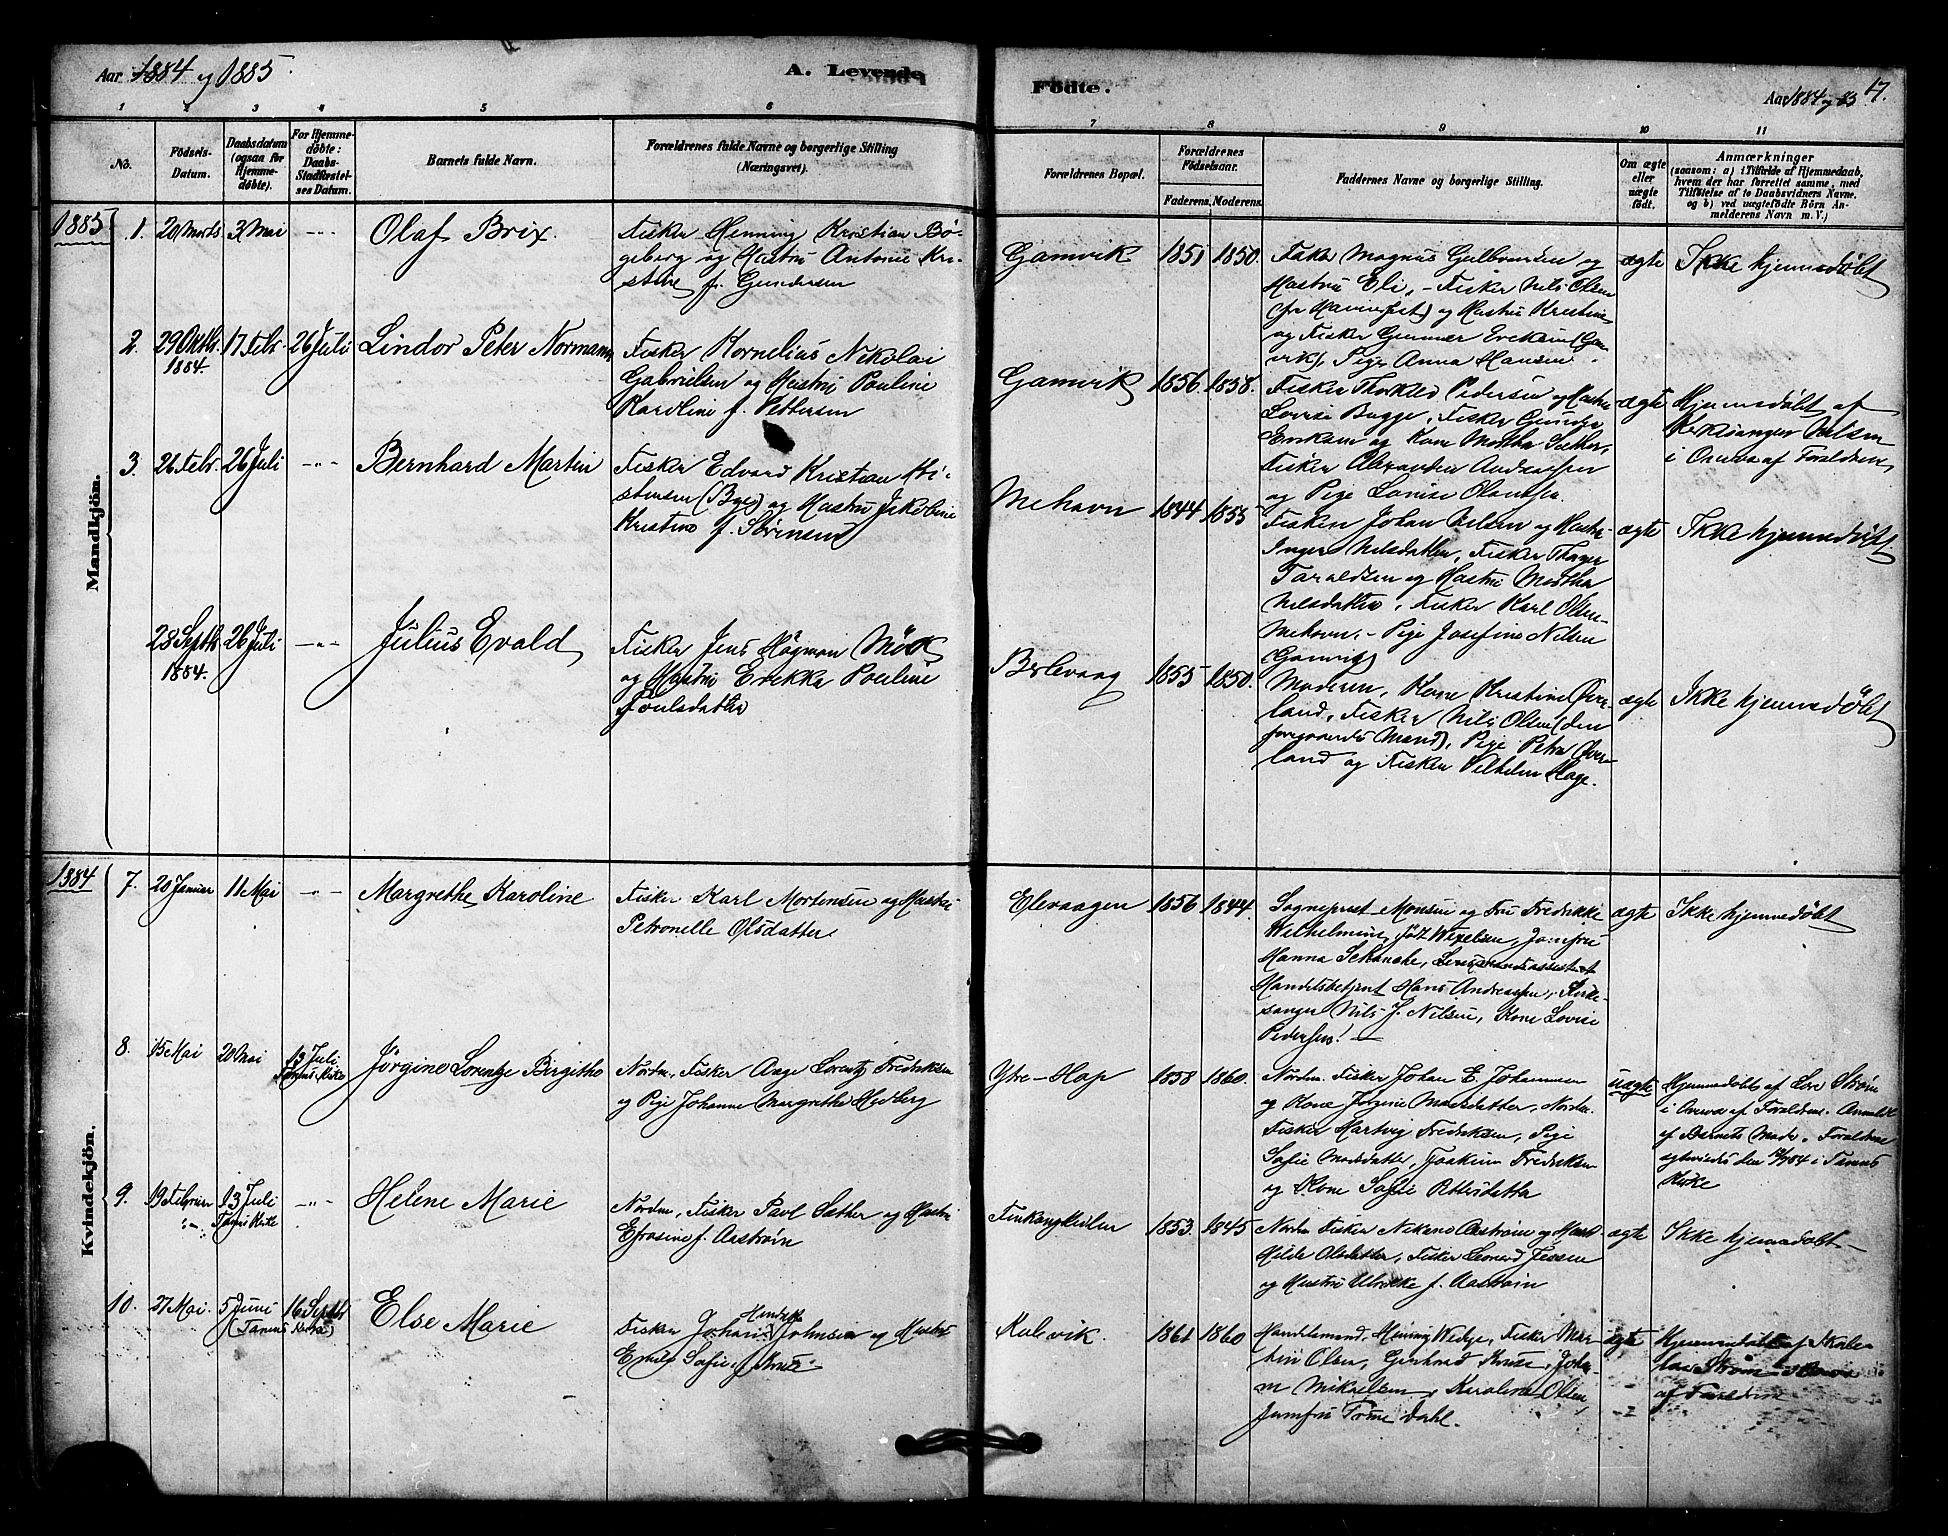 Aar 1884 og 1885.
A. Levende
Fødte.
Aar 1884 og 85
17.
1 2 3 4 5 6
7 8 9 10 11
No.
Födsels-Datum.
Daabsdatum (ogsaa for Hjemme-döbte).
For Hjemme-döbte: Daabs-Stadfæstel-ses Datum.
Barnets fulde Navn.
Forældrenes fulde Navne og borgerlige Stilling (Næringsvei).
Forældrenes Bopæl.
Forældrenes Födselsaar.
Faderens. Moderens.
Faddernes Navne og borgerlige Stilling.
Om ægte eller uægte födt.
Anmærkninger
(saasom: a) i Tilfælde af Hjemmedaab,
hvem der har forrettet samme, med
Tilföielse af to Daabsvidners Navne.
og b) ved uægtefödte Börn An-
melderens Navn m. V.)
Mandkjön.
1885
1. 20 Marts 3 Mai Olaf Brix.
Fisker Henning Kristian Bö-
geberg og Hustru Antonie Kri-
stine f. Gundersen
Gamvik 1851 1850.
Fisker Magnus Gulbransen og
Hustru Eli, - Fisker Nils Olsen
(fra Hammerfest) og Hustru Kristine
og Fisker Gunner Ericksen (Gam-
vik), Pige Anna Hansen.
ægte Ikke hjemmedøbt
2. 29 Oktbr 1884. 17 Febr. 26 Juli Lindor Peter Normann
Fisker Kornelius Nikolai
Gabrielsen og Hustru Pauline
Karoline f. Pettersen
Gamvik 1856. 1858.
Fisker Pedersen og Hustru
Lovise Bugge, Fisker
og Kone Martha Sæther,
Fisker Alexander Andreassen
og Pige Lovise
ægte Hjemmedøbt af
Kirkesanger Nilsen
i Overvær af Foraldrene
3. 26 Febr. 26 Juli Bernhard Martin
Fisker Edvard Kristian Kri-
stensen (Bye) og Hustru Jakobine
Kristine f. Sørensen
Mehavn 1844 1855
Fisker Johan Nilsen og Hustru
Inger Nilsdatter, Fisker
Taraldsen og Hustru Martha
Nilsdatter, Fisker Karl Olsen
Mehavn, - Pige Josefine Nilsen
(Gamvig)
ægte Ikke hjemmedøbt
28 Septb 1884. 26 Juli Julius Evald
Fisker Jens Hågman Mök
og Hustru Erikka Pauline
Poulsdatter
Berlevaag 1855 1850.
Moderen, Kone Kristine Øver-
land, Fisker Nils Olsen (den
foregaaendes Mand), Pige Petra Øver-
land og Fisker Vilhelm Hage.
ægte Ikke hjemmedöbt
Kvindekjön.
1884
7. 20 Januar 11 Mai Margrethe Karoline
Fisker Karl Mortensen og Hustru
Petronelle Olsdatter
Elevaagen 1856 1844.
Sogneprest Monsen og Fru Fredrikke
Wilhelmine, født Wexelsen, Jomfru
Hanna Schanche,
Handelsbetjent Hans Andreassen, Kirke-
sanger Nils J. Nilsen, Kone Lovise
Pedersen!
ægte Ikke hjemmedøbt
8. 15 Mai 20 Mai 13 Juli Tanens Kirke Jörgine Lorentze Birgithe
Nordm. Fisker Aage Lorentz Fredriksen
og Pige Johanne Margrethe Hedberg
Ytre-Hop 1858 1860.
Nordm. Fisker Johan E. Johannesen
og Kone Jørgine Madsdatter, Nordm.
Fisker Hartvig Fredriksen, Pige
Sofie Madsdatter, Joakim Fredriksen
og Kone Sofie Petersdatter
uægte Hjemmedøbt af Strøm
i Overvær af Foraldrene. Anmeldt
af Barnets Moder. Foraldrene
ægteviedes den i Tanens
Kirke
9. 19 Februar 13 Juli Tanens Kirke Helene Marie
Nordm., Fisker Paul Sæther og Hustru
Efrosine f. Aastrøm
1853. 1845
Nordm Fisker Aastrøm og Hustru
Hilde Olsdatter, Fisker Leonard Jessen
og Hustru Ulrikke f. Aastrøm
ægte Ikke hjemmedøbt
10. 27 Mai. 5 Juni 16 Septb (Tanens Kirke) Else Marie
Fisker Johan Hendrik Johnsen og Hustru
Sofie f.
Kalevik. 1861 1860
Handelsmand, Henning Wedge, Fisker Mar-
tin Olsen, Gerhard
Mikkelsen, Karoline Olsen,
Jomfru Dahl.
ægte Hjemmedøbt af Skole-
lær Strøm
af Foraldrene